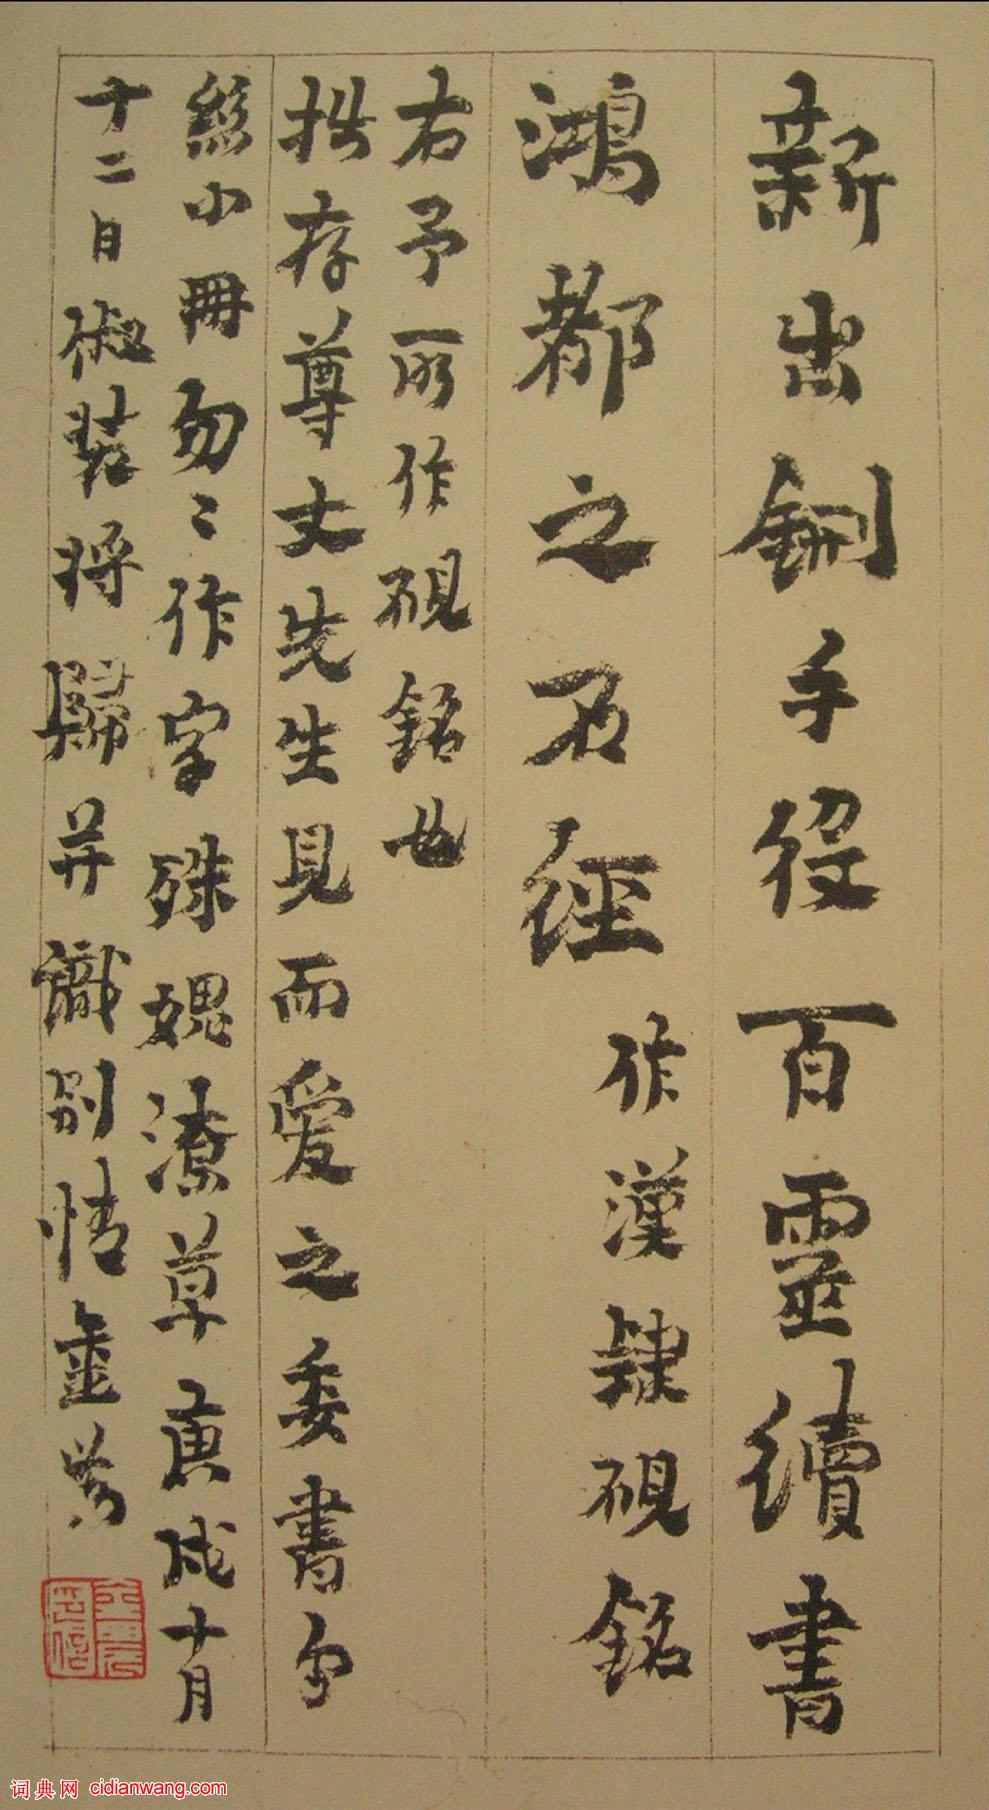 新出鉶手役百靈續書
鴻都之石經 作漢隸硯銘
右予所作硯銘也
拙存尊丈先生見而愛之委書自
綜小冊勿〻作字殊媿潦草庚戌十月
十二日俶裝將歸并識別情金農
词典网 cidianwang.com